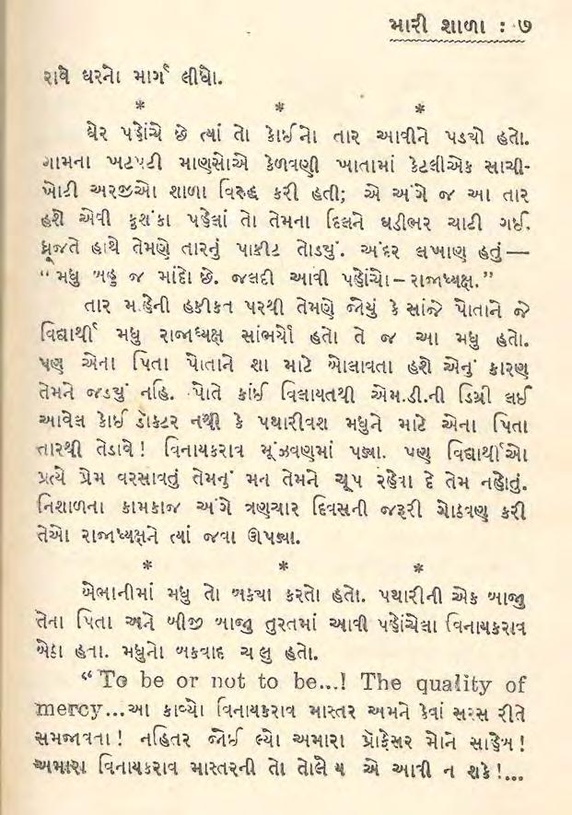 મારી શાળા : ૭
રાવે ઘરનો માર્ગ લીધો.
*   *   *
ઘેર પહોંચે છે ત્યાં તો કોઈનો તાર આવીને પડ્યો હતો.
ગામના ખટપટી માણસોએ કેળવણી ખાતામાં કેટલીએક સાચી-
ખોટી અરજીઓ શાળા વિરુદ્ધ કરી હતી; એ અંગે જ આ તાર
હશે એવી કુશંકા પહેલાં તો તેમના દિલને ઘડીભર ચાટી ગઈ.
ધ્રૂજતે હાથે તેમણે તારનું પાકીટ તોડ્યું. અંદર લખાણ હતું—
“મધુ બહુ જ માંદો છે. જલદી આવી પહોંચો–રાજાધ્યક્ષ.”
તાર માંહેની હકીકત પરથી તેમણે જોયું કે સાંજે પોતાને જે
વિદ્યાર્થી મધુ રાજાધ્યક્ષ સાંભર્યો હતો તે જ આ મધુ હતો.
પણ એના પિતા પોતાને શા માટે બોલાવતા હશે એનું કારણ
તેમને જડ્યું નહિ. પોતે કાંઈ વિલાયતથી એમ.ડી.ની ડિગ્રી લઈ
આવેલ કોઈ ડૉક્ટર નથી કે પથારીવશ મધુને માટે એના પિતા
તારથી તેડાવે! વિનાયકરાવ મૂંઝવણમાં પડ્યા. પણ વિદ્યાર્થીઓ
પ્રત્યે પ્રેમ વરસાવતું તેમનું મન તેમને ચૂપ રહેવા દે તેમ નહોતું.
નિશાળના કામકાજ અંગે ત્રણચાર દિવસની જરૂરી ગોઠવણ કરી
તેઓ રાજાધ્યક્ષને ત્યાં જવા ઊપડ્યા.
*   *   *
બેભાનીમાં મધુ તો બક્યા કરતો હતો. પથારીની એક બાજુ
તેના પિતા અને બીજી બાજુ તુરતમાં આવી પહોંચેલા વિનાયકરાવ
બેઠા હતા. મધુનો બકવાદ ચાલુ હતો.
“To be or not to be...! The quality of
mercy...આ કાવ્યો વિનાયકરાવ માસ્તર અમને કેવાં સરસ રીતે
સમજાવતા! નહિતર જોઈ લ્યો અમારા પ્રૉફેસર મોને સાહેબ!
અમારા વિનાયકરાવ માસ્તરની તો તોલે ય એ આવી ન શકે!...